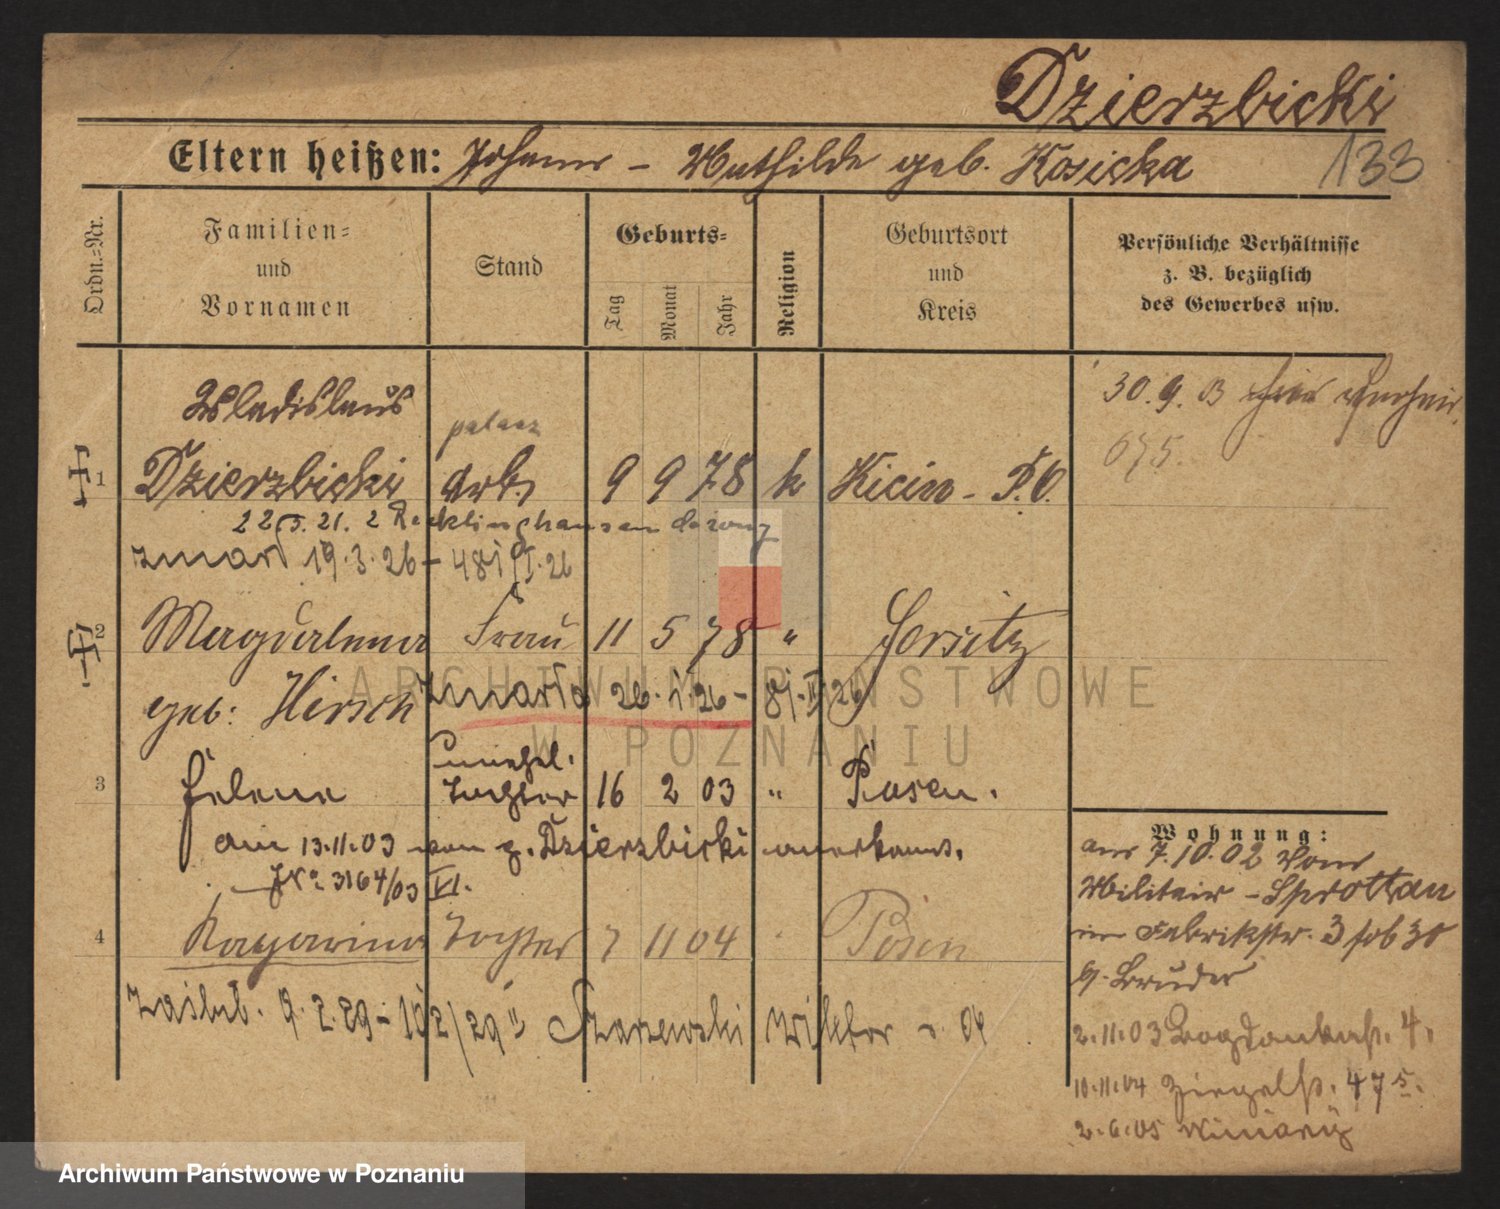 Dzierzbicki
Eltern heißen: Johann - Mathilde geb. Kosicka 133
Ordn.-Nr.
Familien-
und
Vornamen
Stand
Geburts-
Tag
Monat
Jahr
Religion
Geburtsort
und
Kreis
Persönliche Verhältnisse
z. B. bezüglich
des Gewerbes usw.
Wladislaus
30.9.03
675.
palacz
1 Dzierzbicki Arb. 9 9 78 k Kicin - P.O.
22.5.21. z Recklinghausen
zmarł 19.3.26 - 481/II.26
2 Magdalena Frau 11 5 78 "
geb: Hirsch zmarła 26.1.26 - 81-II 26
unehel.
3 Helene Tochter 16 2 03 " Posen.
am 13.11.03 von g. Dzierzbicki anerkannt.
No 3164/03 VI.
4 Katarina Tochter 7 11 04 Posen
zaślub. 9.2.29 - 102/29 Szarzewski Wiktor 04
Wohnung:
am 7.10.02 vom
Militair - Sprottau
in Fabrikstr. 3 sob 30
b. Bruder
2.11.03 Bogdankastr. 4.
10.11.04 Ziegelstr. 47 5.
2.6.05 Winiary
ARCHIWUM PAŃSTWOWE
W POZNANIU
Archiwum Państwowe w Poznaniu